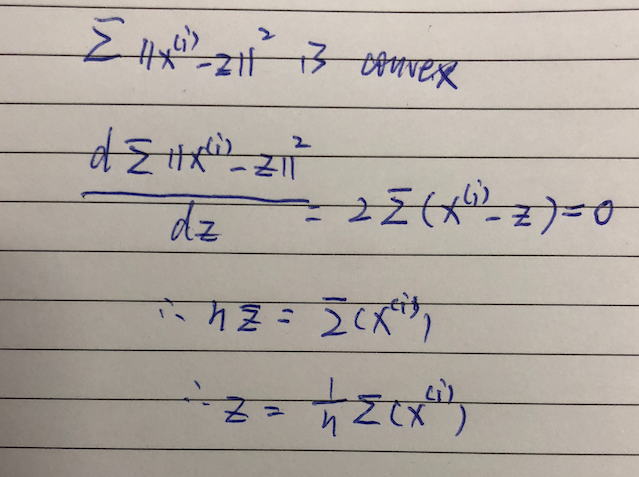 Σ ||x^(i) - z||^2 is convex
d Σ ||x^(i) - z||^2 / dz = 2 Σ (x^(i) - z) = 0
∴ n z = Σ (x^(i))
∴ z = 1/n Σ (x^(i))